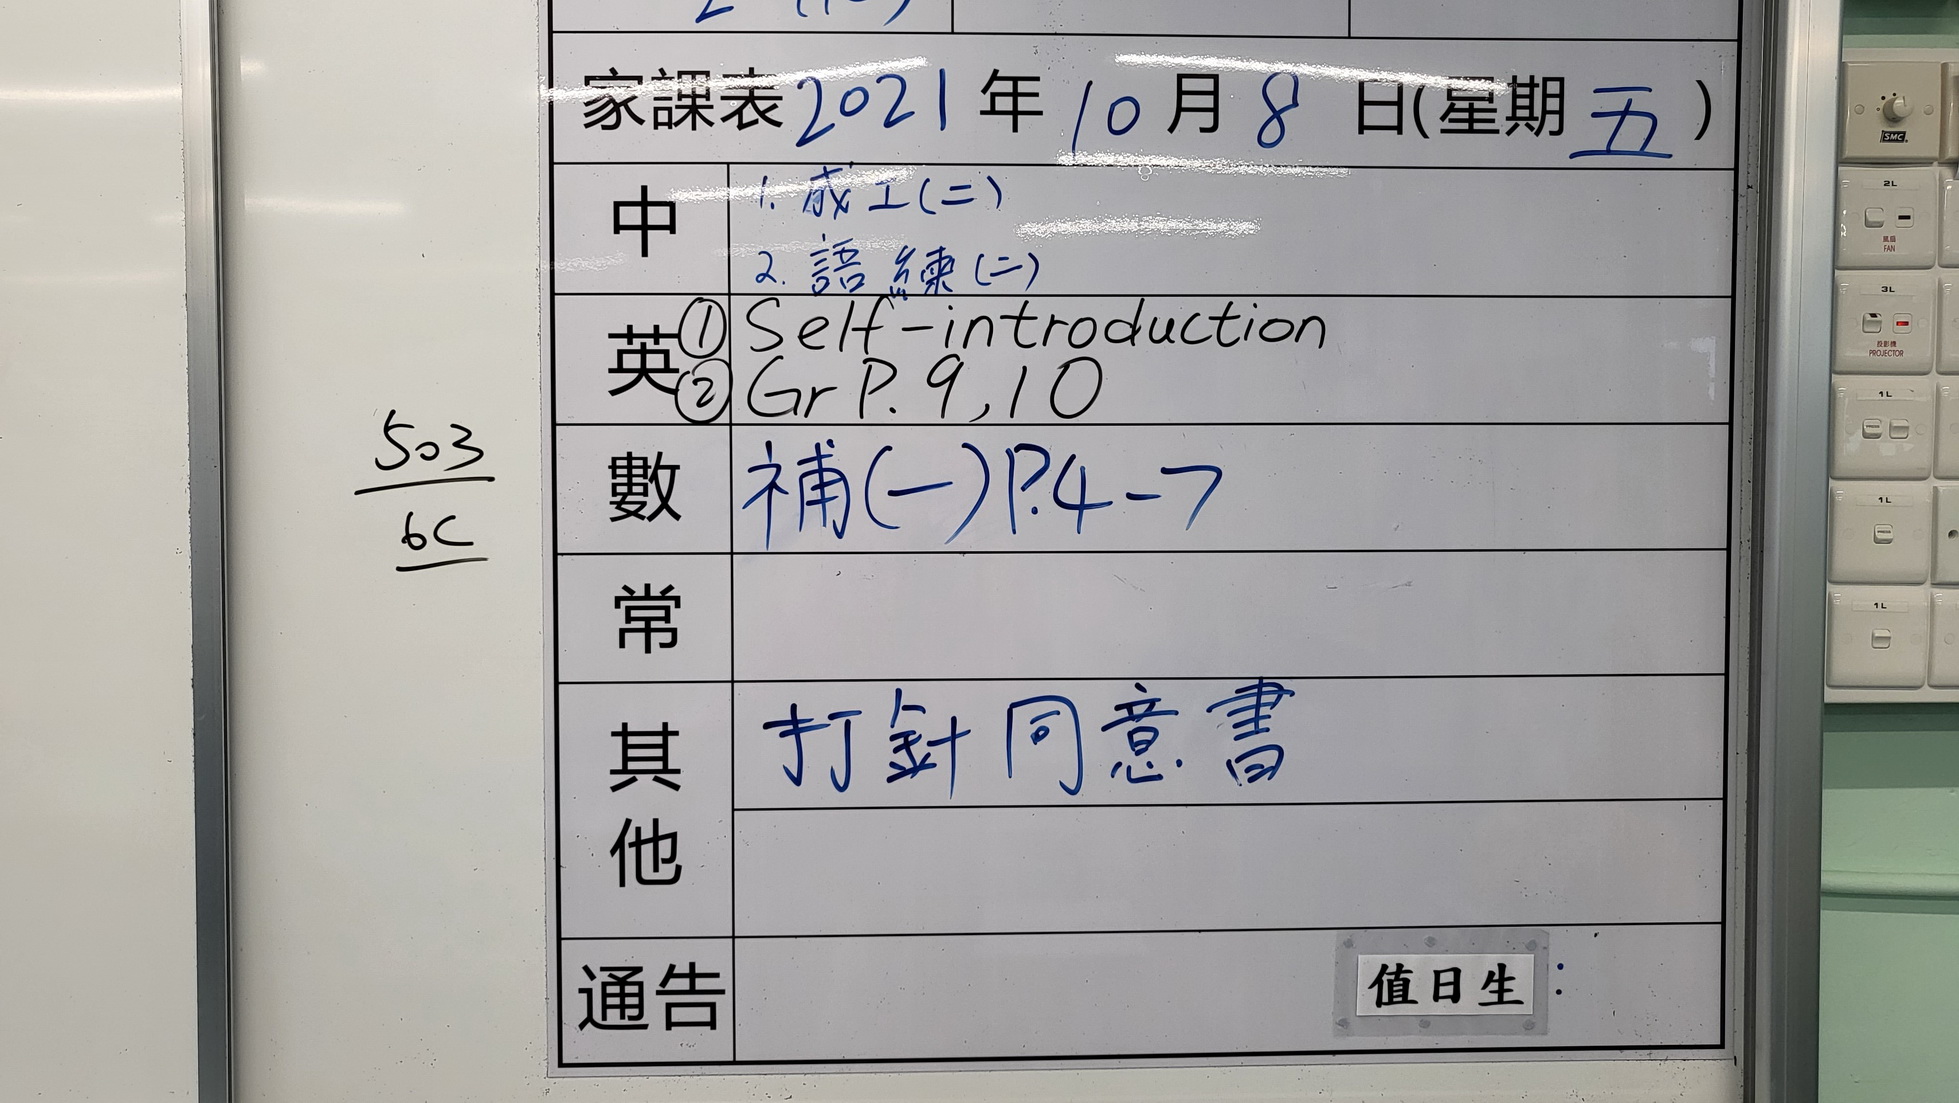 家課表 2021 年 10 月 8 日(星期 五 )
中
1. 成工(二)
2. 語練(二)
英
① Self-introduction
② Gr P. 9, 10
數
補(一) P.4-7
常
其他
打針同意書
通告
值日生:
503
6C
SMC
2L
風扇
FAN
3L
投影機
PROJECTOR
1L
1L
1L